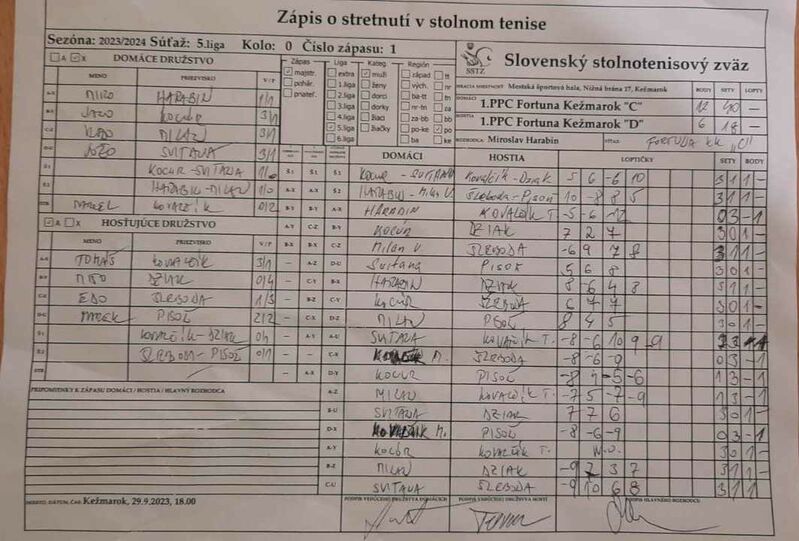 Zápis o stretnutí v stolnom tenise
Sezóna: 2023/2024 Súťaž: 5.liga Kolo: 0 Číslo zápasu: 1
A X DOMÁCE DRUŽSTVO
MENO PRIEZVISKO V/P
MIRO HARABIN 1/1
JANO KOCUR 3/1
VLADO MILAN 3/1
JOŽO SVITANA 3/1
KOCUR-SVITANA 1/0
HARABIN-MILAN 1/0
MAREL KOVALČÍK 0/2
A X HOSŤUJÚCE DRUŽSTVO
MENO PRIEZVISKO V/P
TOMÁŠ KOVALČÍK 3/1
MIRO DZIAK 0/4
EDO SLEBODA 1/3
MAREK PISOŇ 2/2
KOVALČÍK-DZIAK 0/1
SLEBODA-PISOŇ 0/1
PRIPOMIENKY K ZÁPASU DOMÁCI / HOSTIA / HLAVNÝ ROZHODCA
MIESTO, DÁTUM, ČAS: Kežmarok, 29.9.2023, 18.00
Zápas Liga Kateg. Región
majstr. extra muži západ tt
pohár. 1.liga ženy vých. nr
priateľ. 2.liga dorci ba-tt tn
3.liga dorky nr-tn za
4.liga žiaci za-bb bb
5.liga žiačky po-ke po
6.liga ba ke
SSTZ Slovenský stolnotenisový zväz
HRACIA MIESTNOSŤ Mestská športová hala, Nižná brána 17, Kežmarok BODY SETY
DOMÁCI 1.PPC Fortuna Kežmarok "C" 12 40 –
HOSTIA 1.PPC Fortuna Kežmarok "D" 6 18 –
ROZHODCA Miroslav Harabin VÍŤAZ FORTUNA KK "C"
DOMÁCI HOSTIA LOPTIČKY SETY BODY
KOCUR - SVITANA Kovalčík-Dziak 5 6 -6 10 3 1 1 –
HARABIN-Milan V. Sleboda-Pisoň 10 -8 8 5 3 1 1 –
HARABIN KOVALČÍK T. -5 -6 -12 0 3 – 1
KOCÚR DZIAK 7 2 7 3 0 1 –
Milan V. SLEBODA -6 9 7 8 3 1 1 –
Svitana PISOŇ 5 6 8 3 0 1 –
HARABIN DZIAK 8 -6 4 8 3 1 1 –
KOCUR SLEBODA 6 7 7 3 0 1 –
MILAN PISOŇ 8 4 5 3 0 1 –
SVITANA KOVALČÍK T. -8 -6 10 9 -9 2 3 – 1
M. SLEBODA -8 -6 -9 0 3 – 1
KOCUR PISOŇ -8 4 -5 -6 1 3 – 1
MILAN KOVALČÍK T. -7 5 -7 -9 1 3 – 1
SVITANA DZIAK 7 7 6 3 0 1 –
M. PISOŇ -8 -6 -9 0 3 – 1
KOCÚR KOVALČÍK T. W.O. 3 0 1 –
MILAN DZIAK -9 7 3 7 3 1 1 –
SVITANA SLEBODA -9 10 6 8 3 1 1 –
PODPIS VEDÚCEHO DRUŽSTVA DOMÁCICH PODPIS VEDÚCEHO DRUŽSTVA HOSTÍ PODPIS HLAVNÉHO ROZHODCU